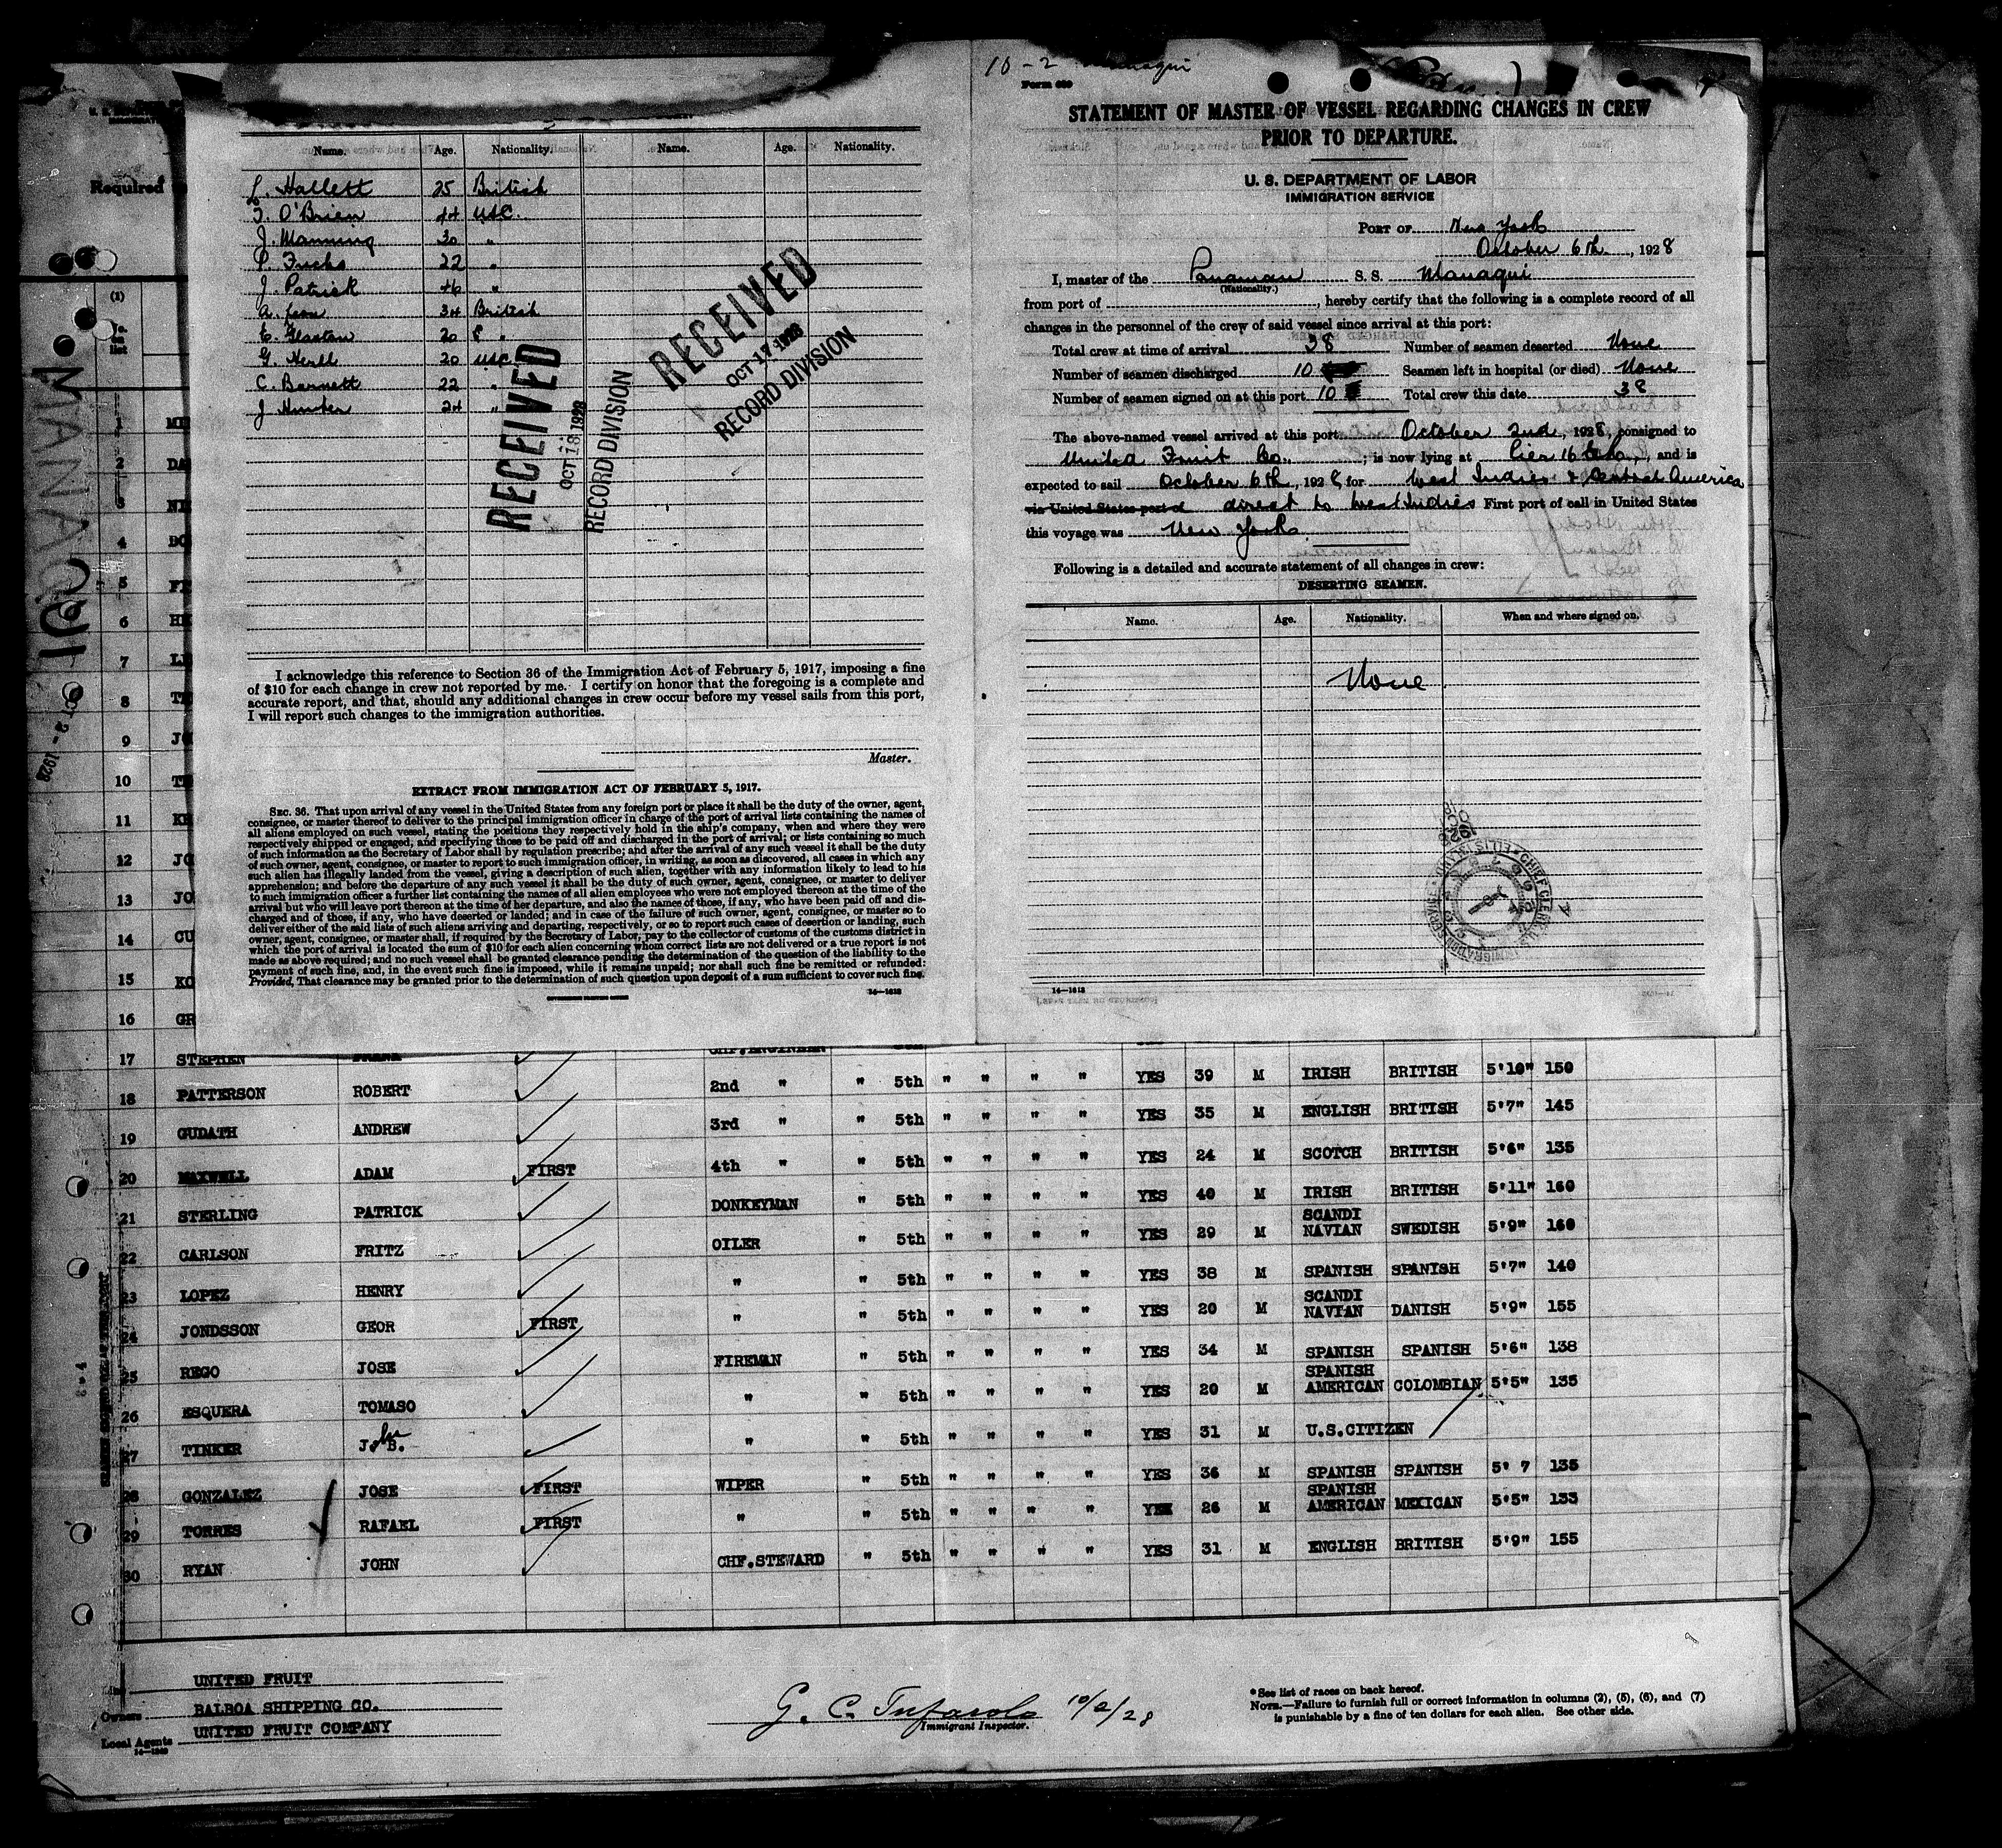 Name. Age. Nationality. Name. Age. Nationality.
L. Hallett 25 British
T. O'Brien 44 USC.
J. Manning 30 "
P. Fuchs 22 "
J. Patrick 46 "
A. 34 British
E. Glaston 20 "
G. Herll 20 USC
C. Barnett 22 "
J Hunter 24 "
RECEIVED
OCT 18 1928
RECORD DIVISION
RECEIVED
OCT 17 1928
RECORD DIVISION
I acknowledge this reference to Section 36 of the Immigration Act of February 5, 1917, imposing a fine
of $10 for each change in crew not reported by me. I certify on honor that the foregoing is a complete and
accurate report, and that, should any additional changes in crew occur before my vessel sails from this port,
I will report such changes to the immigration authorities.
Master.
EXTRACT FROM IMMIGRATION ACT OF FEBRUARY 5, 1917.
SEC. 36. That upon arrival of any vessel in the United States from any foreign port or place it shall be the duty of the owner, agent,
consignee, or master thereof to deliver to the principal immigration officer in charge of the port of arrival lists containing the names of
all aliens employed on such vessel, stating the positions they respectively hold in the ship's company, when and where they were
respectively shipped or engaged, and specifying those to be paid off and discharged in the port of arrival; or lists containing so much
of such information as the Secretary of Labor shall by regulation prescribe; and after the arrival of any such vessel it shall be the duty
of such owner, agent, consignee, or master to report to such immigration officer, in writing, as soon as discovered, all cases in which any
such alien has illegally landed from the vessel, giving a description of such alien, together with any information likely to lead to his
apprehension; and before the departure of any such vessel it shall be the duty of such owner, agent, consignee, or master to deliver
to such immigration officer a further list containing the names of all alien employees who were not employed thereon at the time of the
arrival but who will leave port thereon at the time of her departure, and also the names of those, if any, who have been paid off and dis-
charged and of those, if any, who have deserted or landed; and in case of the failure of such owner, agent, consignee, or master so to
deliver either of the said lists of such aliens arriving and departing, respectively, or so to report such cases of desertion or landing, such
owner, agent, consignee, or master shall, if required by the Secretary of Labor, pay to the collector of customs of the customs district in
which the port of arrival is located the sum of $10 for each alien concerning whom correct lists are not delivered or a true report is not
made as above required; and no such vessel shall be granted clearance pending the determination of the question of the liability to the
payment of such fine, and, in the event such fine is imposed, while it remains unpaid; nor shall such fine be remitted or refunded:
Provided, That clearance may be granted prior to the determination of such question upon deposit of a sum sufficient to cover such fine.
GOVERNMENT PRINTING OFFICE 14—1613
10-2 Managui
Form 689
STATEMENT OF MASTER OF VESSEL REGARDING CHANGES IN CREW
PRIOR TO DEPARTURE.
U. S. DEPARTMENT OF LABOR
IMMIGRATION SERVICE
PORT OF New York
October 6th, 1928
I, master of the Panaman S. S. Managui
(Nationality.)
from port of , hereby certify that the following is a complete record of all
changes in the personnel of the crew of said vessel since arrival at this port:
Total crew at time of arrival 38 Number of seamen deserted None
Number of seamen discharged 10 Seamen left in hospital (or died) None
Number of seamen signed on at this port 10 Total crew this date 38
The above-named vessel arrived at this port October 2nd, 1928, consigned to
United Fruit Co. ; is now lying at Pier 16 , and is
expected to sail October 6th, 1928, for West Indies & Central America
via United States port of direct to West Indies First port of call in United States
this voyage was New York
Following is a detailed and accurate statement of all changes in crew:
DESERTING SEAMEN.
Name. Age. Nationality. When and where signed on.
None
14—1613
Required
(1)
No. on list
MANAGUI
OCT 2 - 1928
1 ME
2 DA
3 NI
4 BO
5 FE
6 HE
7 LE
8 TH
9 JO
10 TH
11 KE
12 JO
13 JO
14 CU
15 KO
16 GR
17 STEPHEN FRANK CHF.ENGINEER
18 PATTERSON ROBERT 2nd " " 5th " " " " YES 39 M IRISH BRITISH 5'10" 150
19 GUDATH ANDREW 3rd " " 5th " " " " YES 35 M ENGLISH BRITISH 5'7" 145
20 MAXWELL ADAM FIRST 4th " " 5th " " " " YES 24 M SCOTCH BRITISH 5'6" 135
21 STERLING PATRICK DONKEYMAN " 5th " " " " YES 40 M IRISH BRITISH 5'11" 160
22 CARLSON FRITZ OILER " 5th " " " " YES 29 M SCANDI NAVIAN SWEDISH 5'9" 160
23 LOPEZ HENRY " " 5th " " " " YES 38 M SPANISH SPANISH 5'7" 140
24 JONDSSON GEOR FIRST " " 5th " " " " YES 20 M SCANDI NAVIAN DANISH 5'9" 155
25 REGO JOSE FIREMAN " 5th " " " " YES 34 M SPANISH SPANISH 5'6" 138
26 ESQUERA TOMASO " " 5th " " " " YES 20 M SPANISH AMERICAN COLOMBIAN 5'5" 135
27 TINKER J. B. " " 5th " " " " YES 31 M U.S.CITIZEN
28 GONZALEZ JOSE FIRST WIPER " 5th " " " " YES 36 M SPANISH SPANISH 5' 7 135
29 TORRES RAFAEL FIRST " " 5th " " " " YES 26 M SPANISH AMERICAN MEXICAN 5'5" 133
30 RYAN JOHN CHF.STEWARD " 5th " " " " YES 31 M ENGLISH BRITISH 5'9" 155
Line UNITED FRUIT
Owners BALBOA SHIPPING CO.
Local Agents UNITED FRUIT COMPANY
14—1240
G. C. Tufarolo 10/2/28
Immigrant Inspector.
*See list of races on back hereof.
NOTE.—Failure to furnish full or correct information in columns (2), (5), (6), and (7)
is punishable by a fine of ten dollars for each alien. See other side.